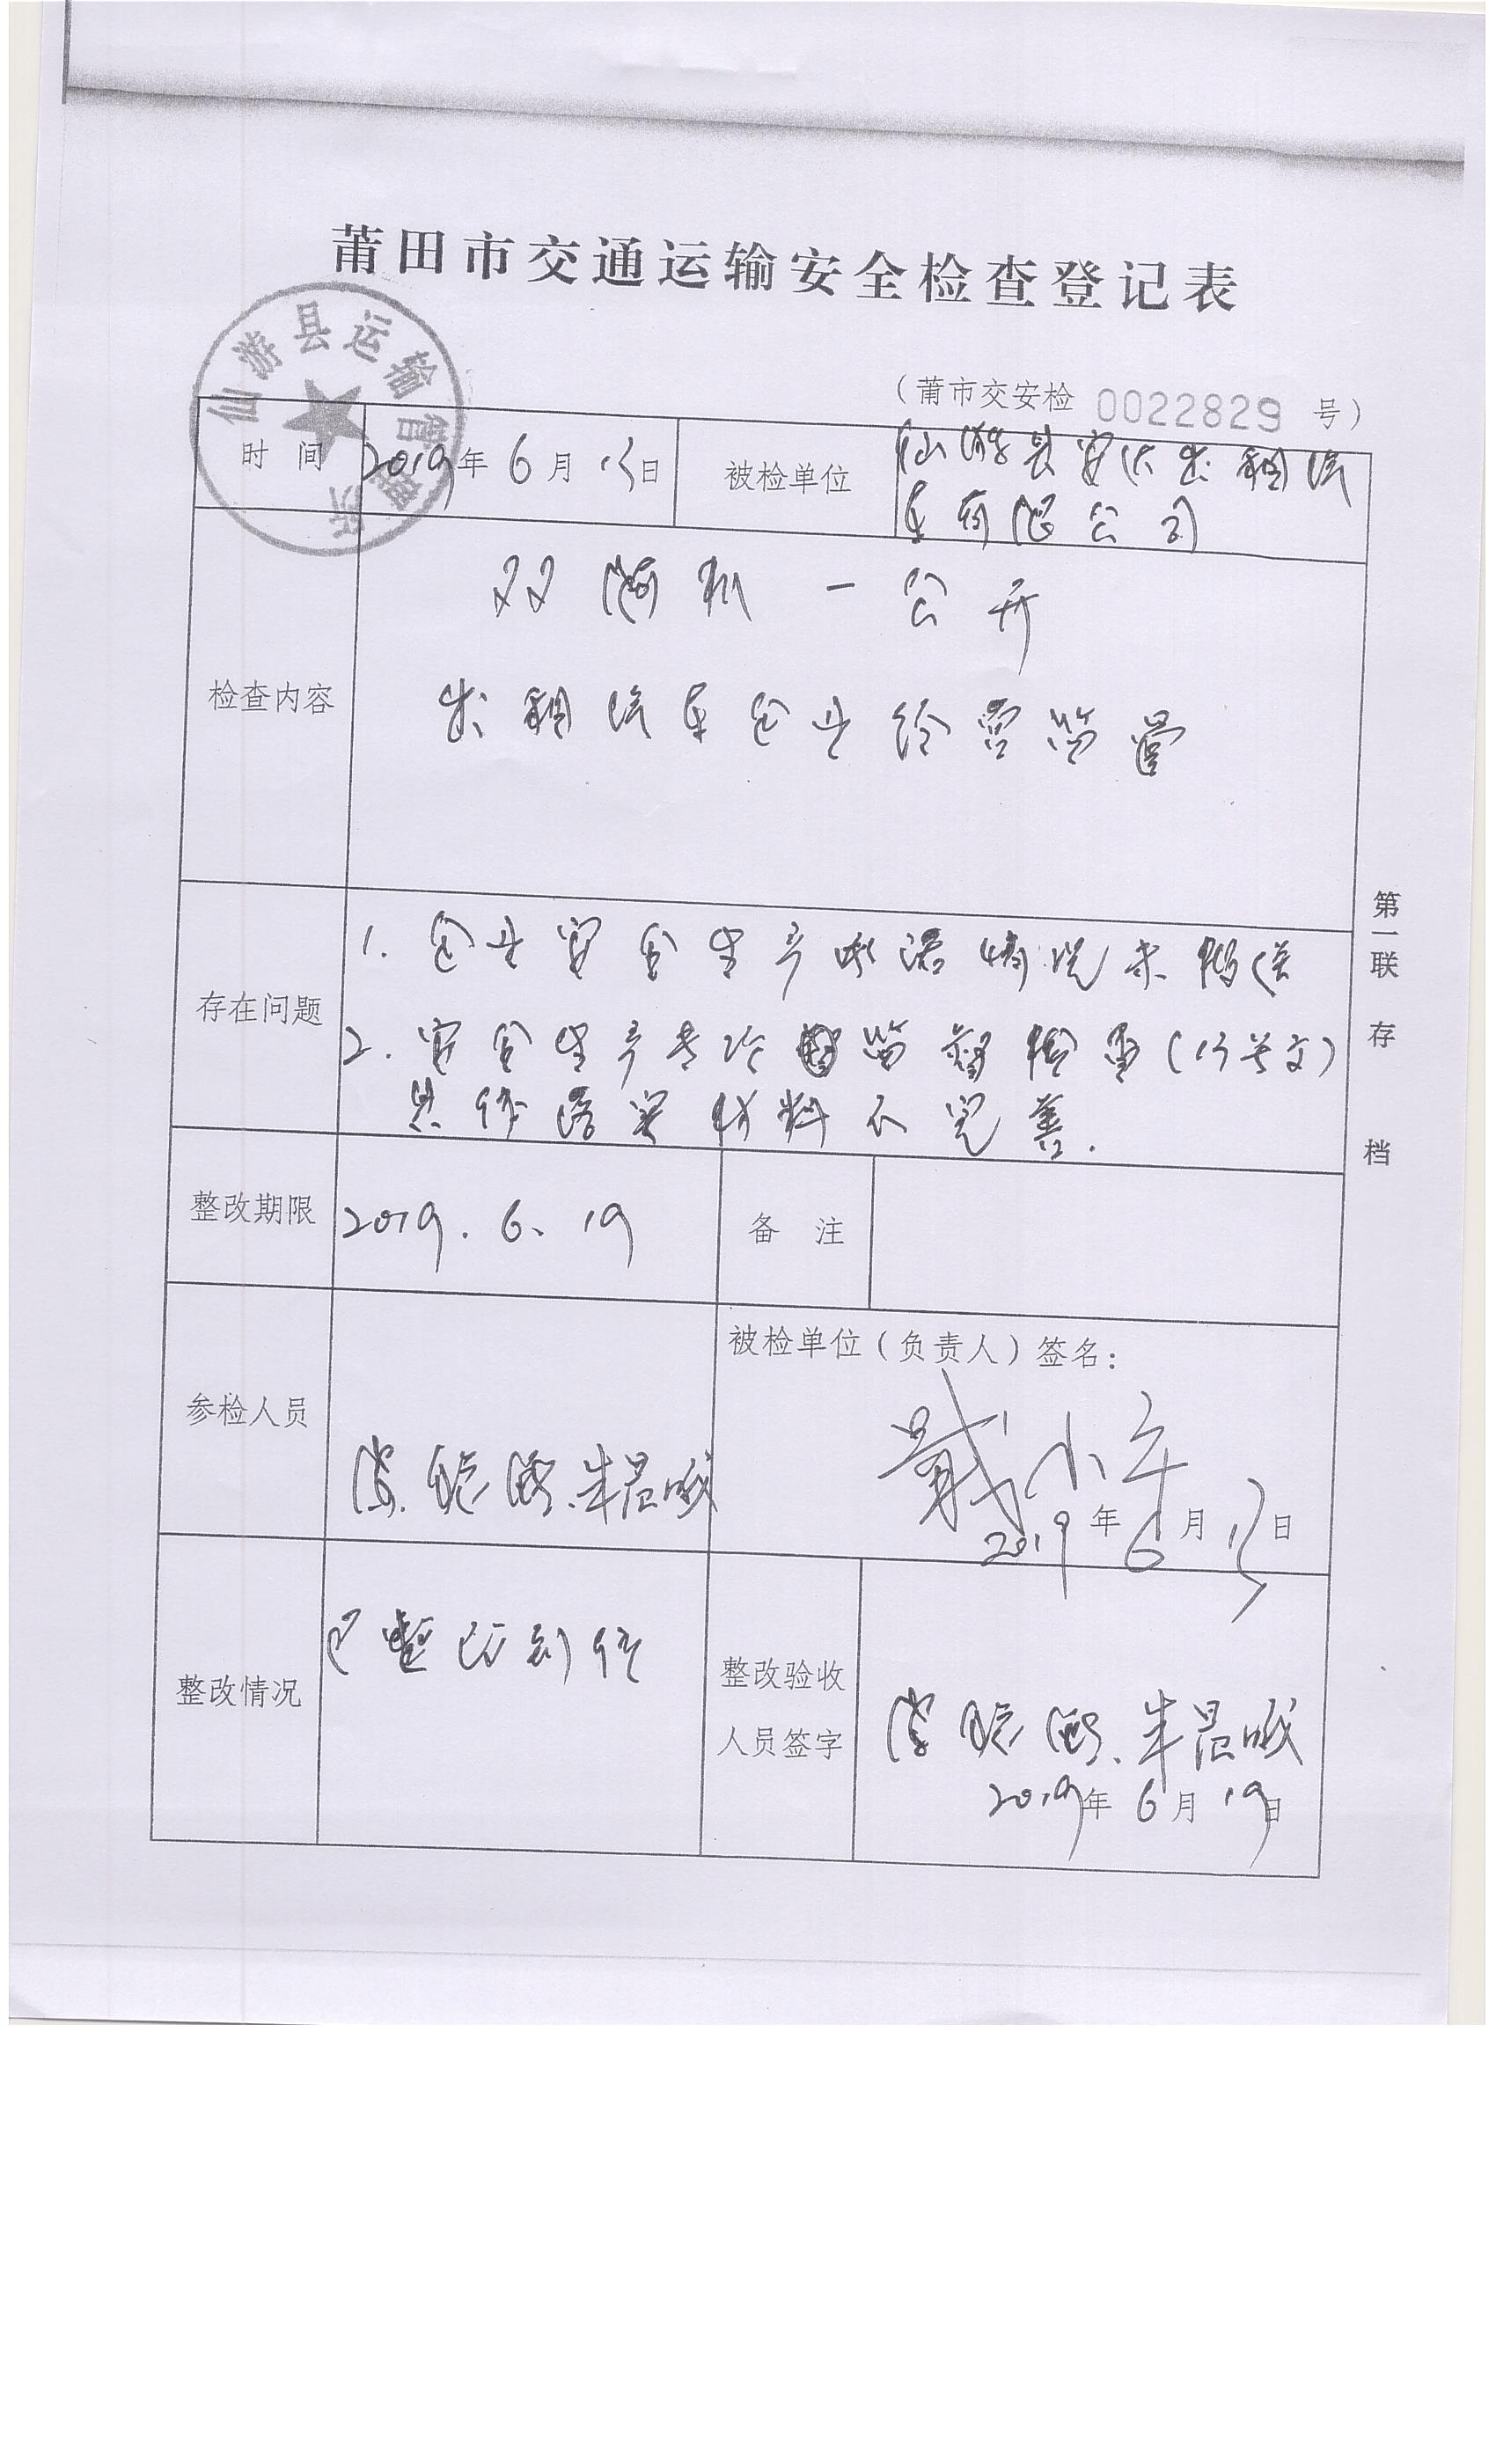 莆田市交通运输安全检查登记表
仙游县运输管理所
（莆市交安检 0022829 号）
时 间 2019年 6 月 13日 被检单位 仙游县安达出租汽
车有限公司
检查内容
双随机一公开
出租汽车企业经营监管
存在问题
1. 企业安全生产 落情况未报送
2. 安全生产专治监督检查(13号文)
具体落实材料不完善.
整改期限 2019.6.19 备 注
参检人员
被检单位（负责人）签名：
戴小平
2019年 6 月 13日
整改情况 已整改到位
整改验收
人员签字
2019年 6 月 19日
第一联 存 档